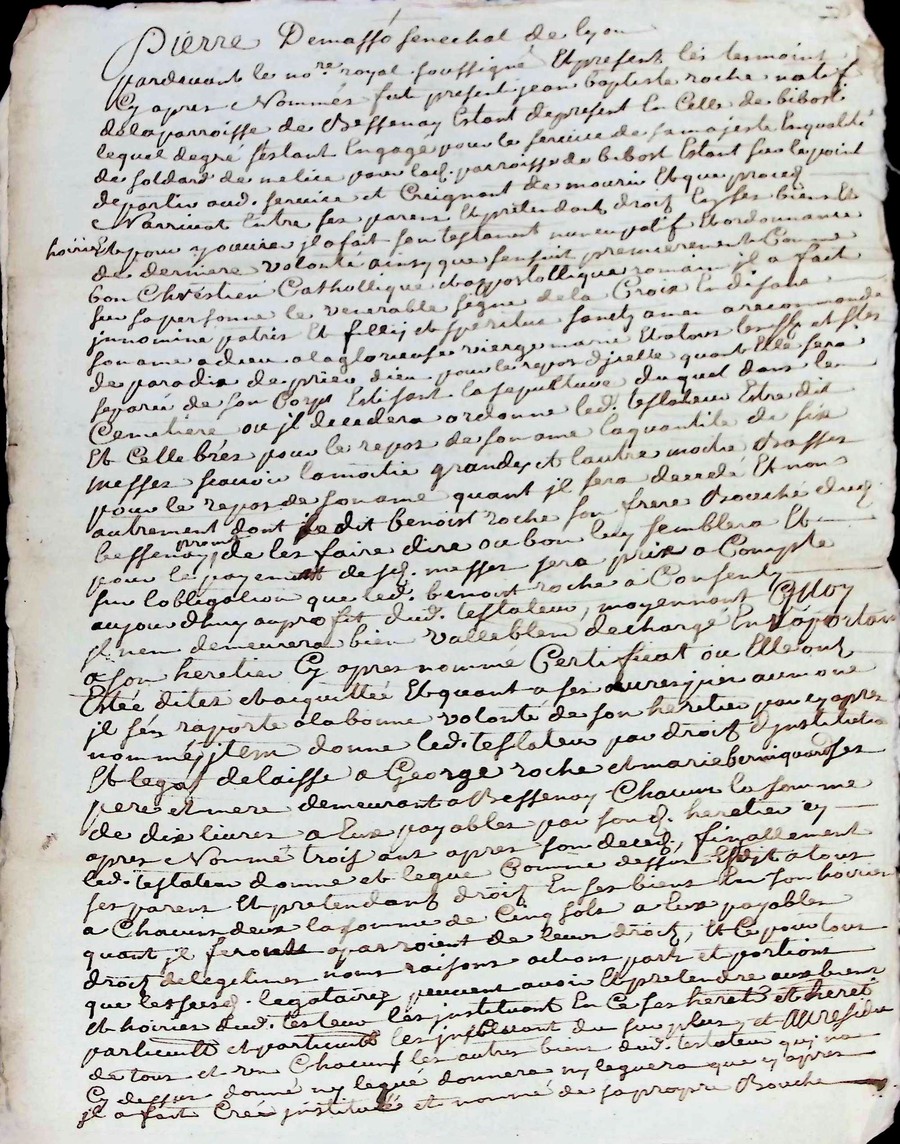 Pierre Demasso senechal de lyon
pardevant le nore. royal soussigné Et present les tesmoint
Cy apres Nommés fut present jean baptiste roche natif
de la parroisse de Bessenay Estant de present En Celle de bibost
lequel de gré sestant Engagé pour le service de sa majeste En qualité
de soldard de melice pour lad. parroisse de bibost Estant sur le point
de partir aud. service et Creignant de mourir Et que proceq
N'arrivat Entre ses parens Et pretendant droit En ses biens Et
hoiries Et pour y ouvier il a fait son testament nuncupatif Et ordonnance
de derniere volonté ainsy que sensuit premierement Comme
bon Chréstien Cathollique et appostollique romain il a fait
sur sa personne le venerable signe de la Croix En disant
in nomine patris Et fillij et speritus sancty amen a recommandé
son ame a dieu a la glorieuse vierge marie Et a tous les Sts et stes
de paradis de prier dieu pour le repos dicelle quant Elle sera
separée de son Corps Eslisant la sepulture duquel dans le
Cemetiere ou il decedera ordonne led. testateur Estre dit
Et Cellebrés pour le repos de son ame la quantite de six
messes scavoir la moitie grandes et lautre moitie Basses
pour le repos de son ame quant il sera decedé Et non
autrement dont ledit benoist roche son frere Bouché dud.
bessenay promet de les faire dire ou bon luy semblera Et
pour le payement de sd. messes sera prix a Compte
sur lobligation que led. benoist roche a Consenty
aujourdhuy au profet dud. testateur, moyennant Quoy
il nen demeurera bien vallablem dechargé En raportant
a son heretier Cy apres nommé Certifficat ou Elle ont
Estée dites et acquittée Et quant a ses autres pien aumone
il sen raporte a la bonne volonté de son heretier par cy apres
nommé, item donne led. testateur par droit dinstitution
Et legat delaisse a George roche et marie berniquard ses
pere et mere demeurant a Bessenay Chacun la somme
de dix livres a Eux payables par sond. heretier cy
apres Nommé trois ans apres son deced, finallement
led. testateur donne et legue Comme dessus Esdit a tous
ses parens Et pretendant droit En ses biens En son hoirie
a Chacun deux la somme de Cinq sols a Eux payables
quant il feront aparroient de leurs droit, Et Ce pour tous
droit de legitimes noms raisons actions part et portions
que lesd. legataires peuvent avoir Et pretendre aux biens
et hoiries dud. testeur les instituant En Ce ses herets. et hereti
particulie et particulie les instituant du surplus, et Au residu
de tous et un Chacun les autres biens dud. testateur quj na
Cy dessus donné ny legué donnera ny leguera que cy apres
il a fait Cree institué et nommé de sa propre Bouche